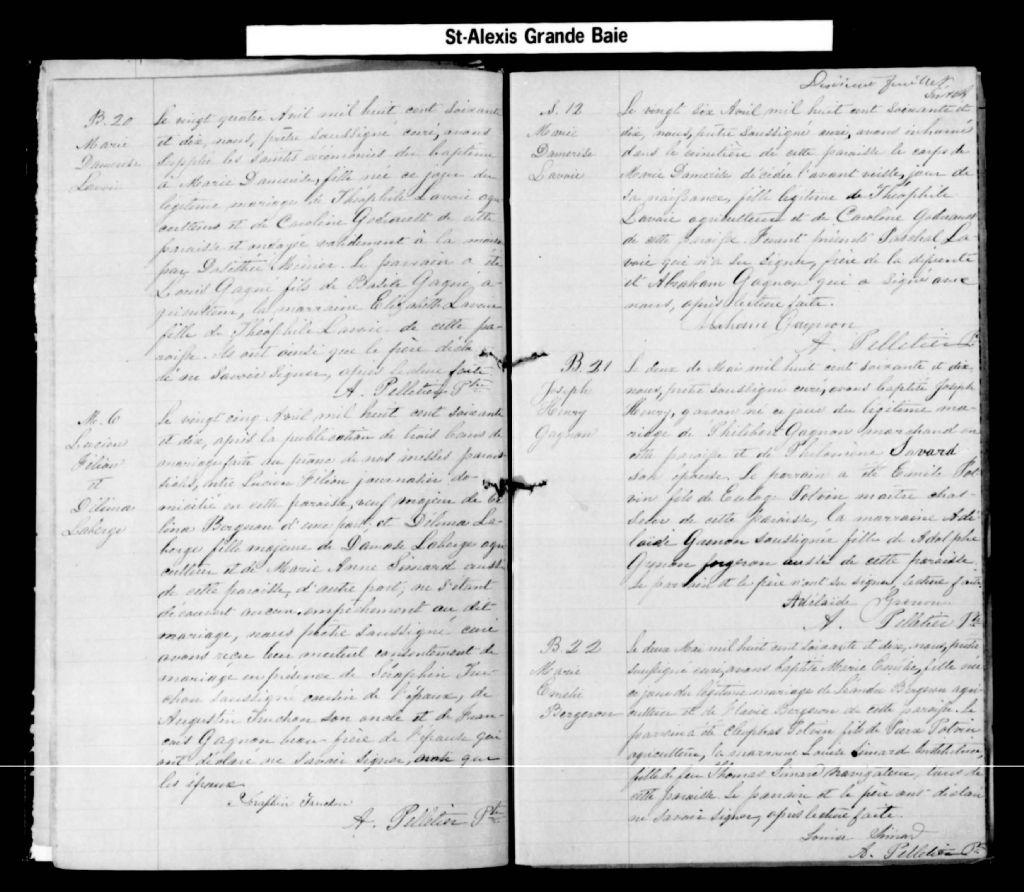 St-Alexis Grande Baie
B. 20
Marie
Damerise
Lavoie
Le vingt quatre Avril mil huit cent soixante
et dix, nous, prêtre soussigné curé, avons
supplée les saintes cérémonies du baptême
à Marie Damerise, fille née ce jour du
légitime mariage de Théophile Lavoie agri
culteur et de Caroline Godreault de cette
paroisse et ondoyée validement à la maison
par Dalethée Minier. Le parrain a été
Louis Gagné fils de Basile Gagné, a
griculteur, la marraine Elizabeth Lavoie
fille de Théophile Lavoie de cette pa-
roisse. Ils ont ainsi que le père décla
ré ne savoir signer, après lecture faite
A. Pelletier Ptre
M. 6
Lucien
Filion
et
Délima
Laberge
Le vingt cinq Avril mil huit cent soixante
et dix, après la publication de trois bans de
mariage faite au prône de nos messes parois
siales, entre Lucien Filion journalier do-
micilié en cette paroisse, veuf majeur de Cé
lina Bergeron d'une part; et Délima La-
berge fille majeure de Damase Laberge agri
culteur et de Marie Anne Simard aussi
de cette paroisse, d'autre part; ne s'étant
découvert aucun empêchement au dit
mariage, nous prêtre soussigné curé
avons reçu leur mutuel consentement de
mariage en présence de Séraphin Tru-
chon soussigné cousin de l'époux, de
Augustin Truchon son oncle et de Fran-
çois Gagnon beau-frère de l'épouse qui
ont déclaré ne savoir signer, que
les époux
Séraphin Truchon
A. Pelletier Ptre
feuillet
S. 12
Marie
Damerise
Lavoie
Le vingt six Avril mil huit cent soixante et
dix, nous, prêtre soussigné curé, avons inhumé
dans le cimetière de cette paroisse le corps de
Marie Damerise décédée l'avant veille, jour de
sa naissance, fille légitime de Théophile
Lavoie agriculteur et de Caroline Godreault
de cette paroisse. Furent présents Paschal La-
voie qui n'a su signer, frère de la défunte
et Abraham Gagnon qui a signé avec
nous, après lecture faite.
Abraham Gagnon
A. Pelletier P.
B. 21
Joseph
Henry
Gagnon
Le deux de Mai mil huit cent soixante et dix,
nous, prêtre soussigné curé, avons baptisé Joseph
Henry, garçon né ce jour du légitime ma-
riage de Philibert Gagnon marchand en
cette paroisse et de Philomène Savard
son épouse. Le parrain a été Emile Pot-
vin fils de Euloge Potvin maître chas-
seur de cette paroisse, la marraine Adé
laide Grenon soussignée fille de Adolphe
Grenon forgeron aussi de cette paroisse.
Le parrain et le père n'ont su signer, lecture faite.
Adélaide Grenon
A. Pelletier Ptre
B. 22
Marie
Emélie
Bergeron
Le deux Mai mil huit cent soixante et dix, nous, prêtre
soussigné curé, avons baptisé Marie Emélie, fille née
ce jour du légitime mariage de Léandre Bergeron agri-
culteur et de Flavie Bergeron de cette paroisse. Le
parrain a été Cléophas Potvin fils de Pierre Potvin
agriculteur, la marraine Louise Simard Institutrice,
fille de feu Thomas Simard navigateur, tous de
cette paroisse. Le parrain et le père ont déclaré
ne savoir signer, après lecture faite.
Louise Simard
A. Pelletier Pt